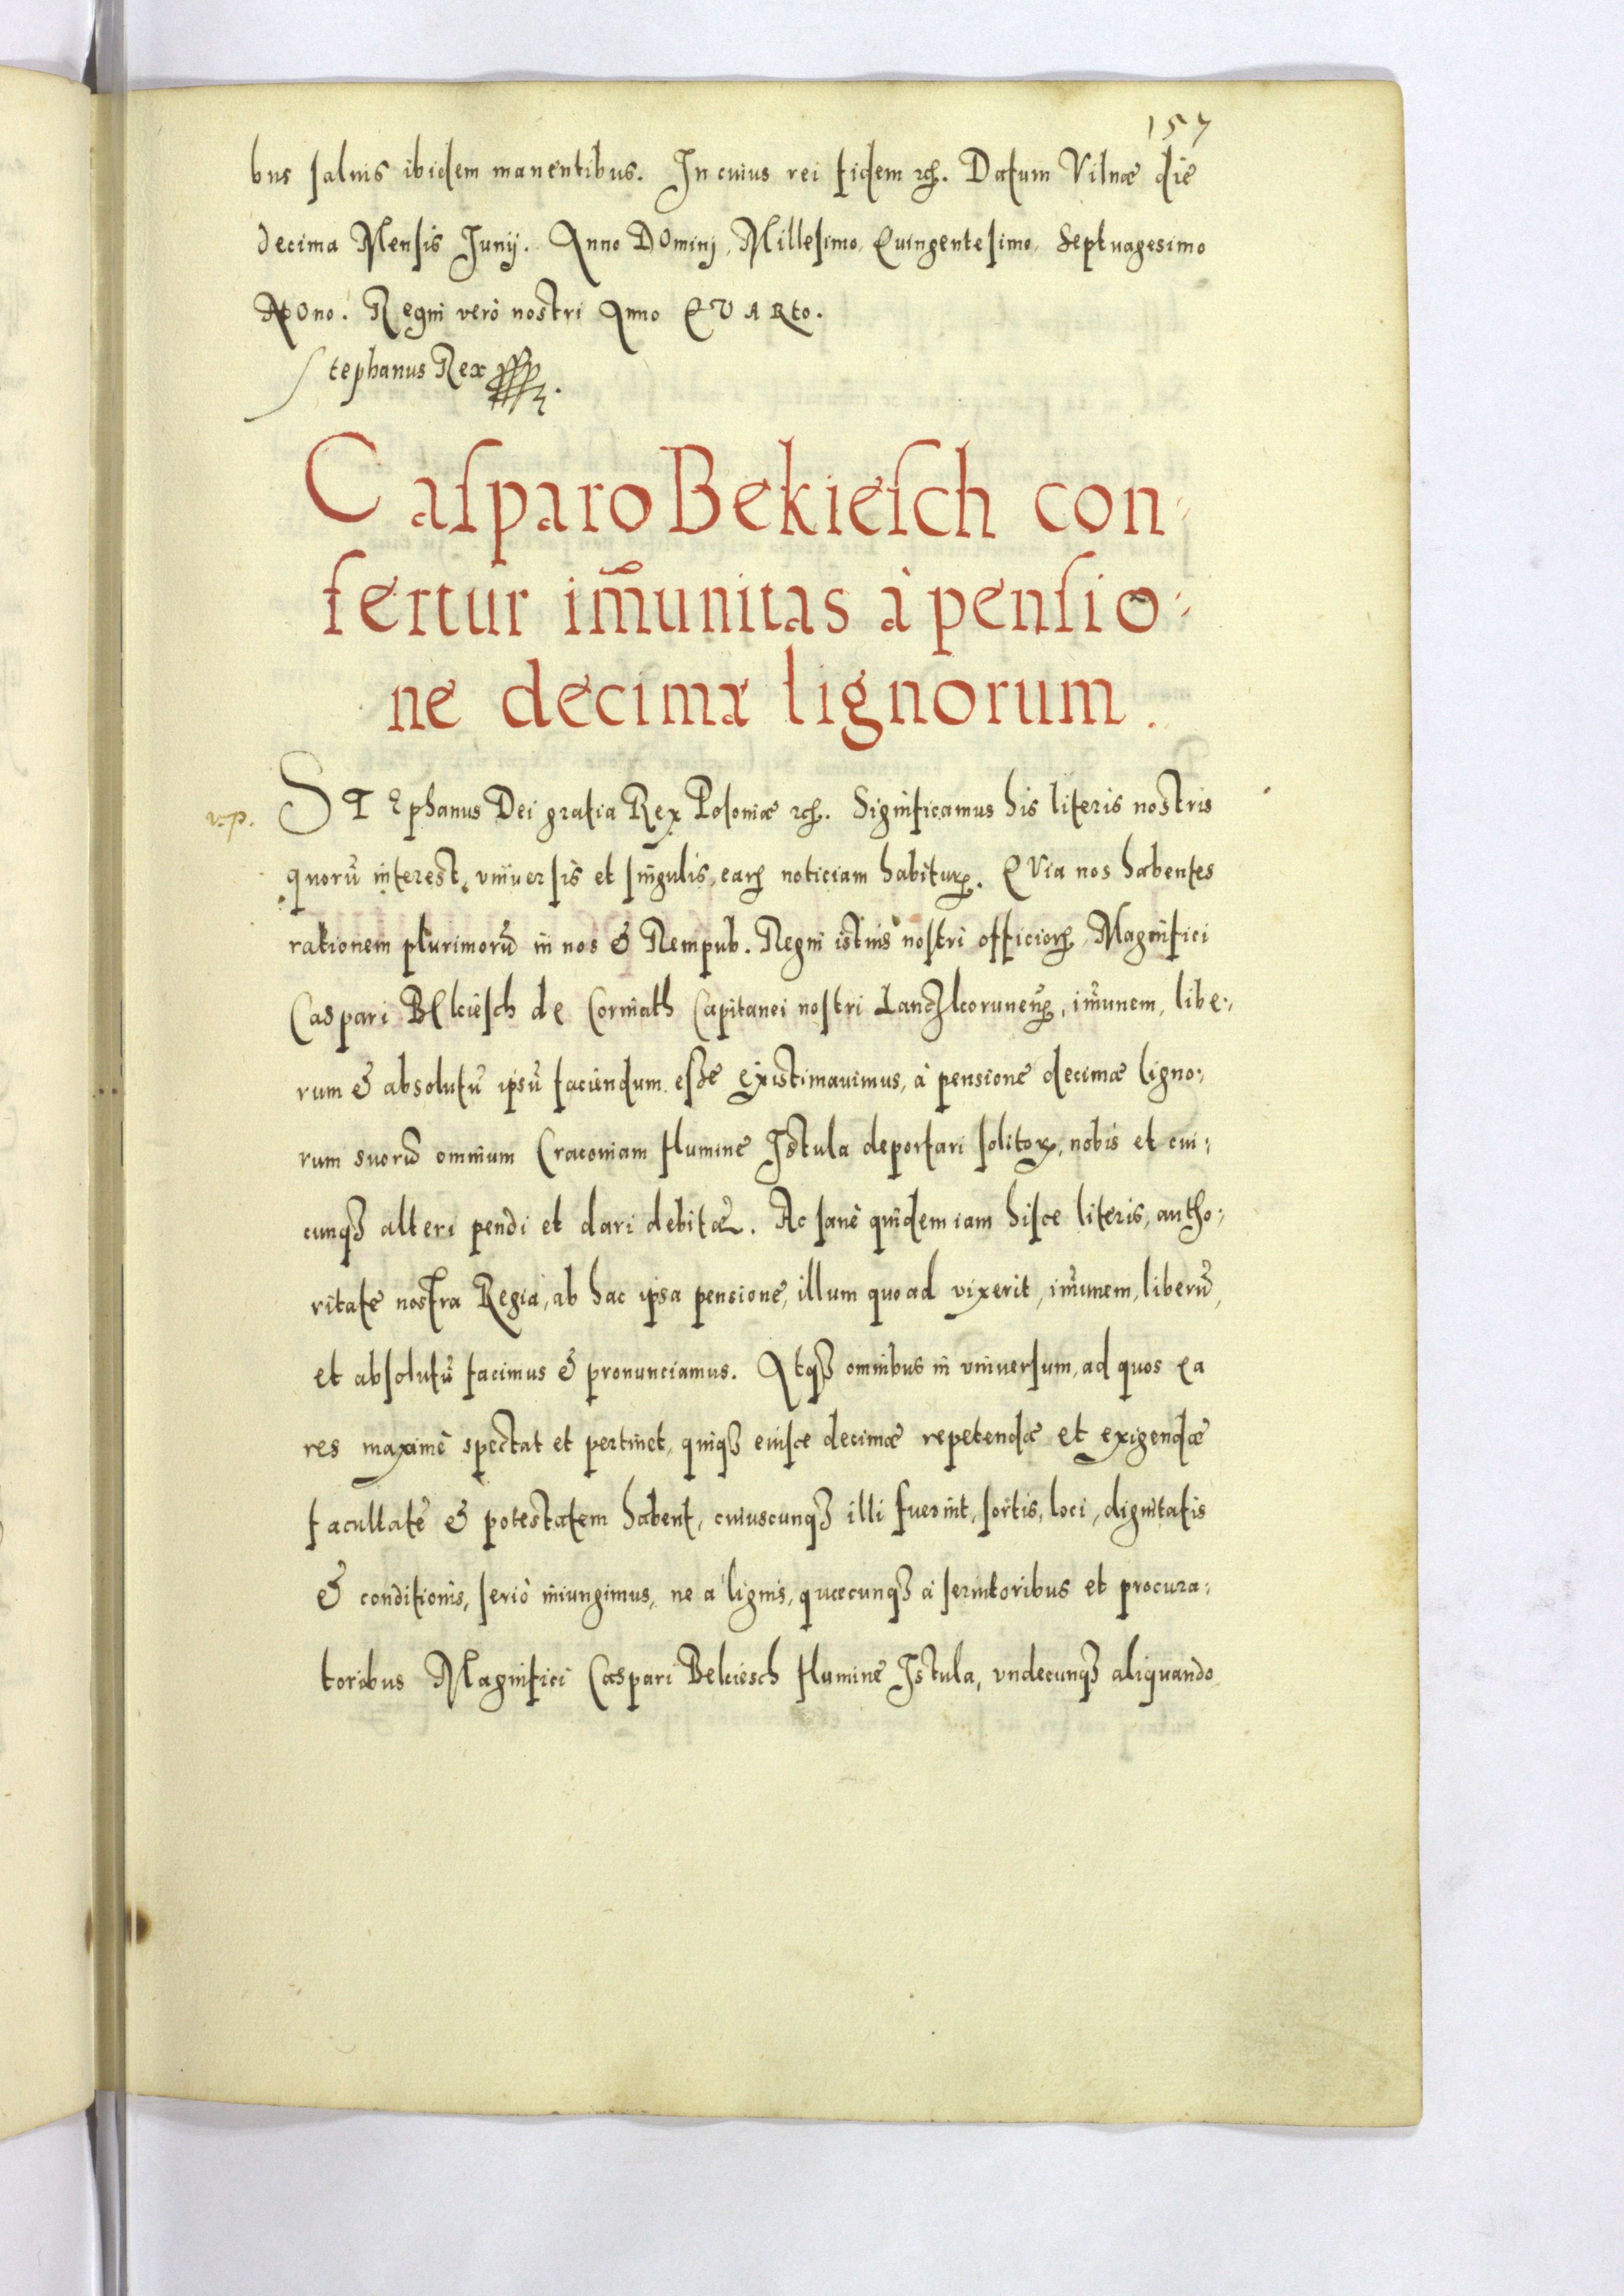 157
bus saluis ibidem manentibus. In cuius rei fidem ꝛc̃. Datum Vilnæ die
decima Mensis Junij. Anno DOminj, Millesimo, Quingentesimo, Septuagesimo
NOno. Regni verò nostri Anno QVARto.
Stephanus Rex
Casparo Bekiesch con-
fertur im̃unitas à pensio-
ne decimæ lignorum.
v.p.
STEphanus Dei gratia Rex Poloniæ ꝛc̃. Significamus his literis nostris
quorũ interest, vniuersis et singulis, earꝝ noticiam habiturꝝ. QVia nos habentes
rationem plurimorũ in nos & Rempub. Regni istius nostri officiorꝝ, Magnifici
Caspari BEkiesch de Corniath Capitanei nostri Landzkorunenꝝ, im̃unem, libe-
rum & absolutũ ipsũ faciendum esse existimauimus, à pensione decimæ ligno-
rum suorũ omnium Cracouiam flumine Istula deportari solitorꝝ, nobis et cui-
cunqꝫ alteri pendi et dari debitæ. Ac sanè quidem iam hisce literis, autho-
ritate nostra Regia, ab hac ipsa pensione, illum quoad vixerit, im̃unem, liberũ,
et absolutũ facimus & pronunciamus. Atqꝫ omnibus in vniuersum, ad quos ea
res maximè spectat et pertinet, quiqꝫ eiusce decimæ repetendæ et exigendæ
facultatẽ & potestatem habent, cuiuscunqꝫ illi fuerint, sortis, loci, dignitatis
& conditionis, seriò iniungimus, ne a lignis, quæcunqꝫ à seruitoribus et procura-
toribus Magnifici Caspari Bekiesch flumine Istula, vndecunqꝫ aliquando